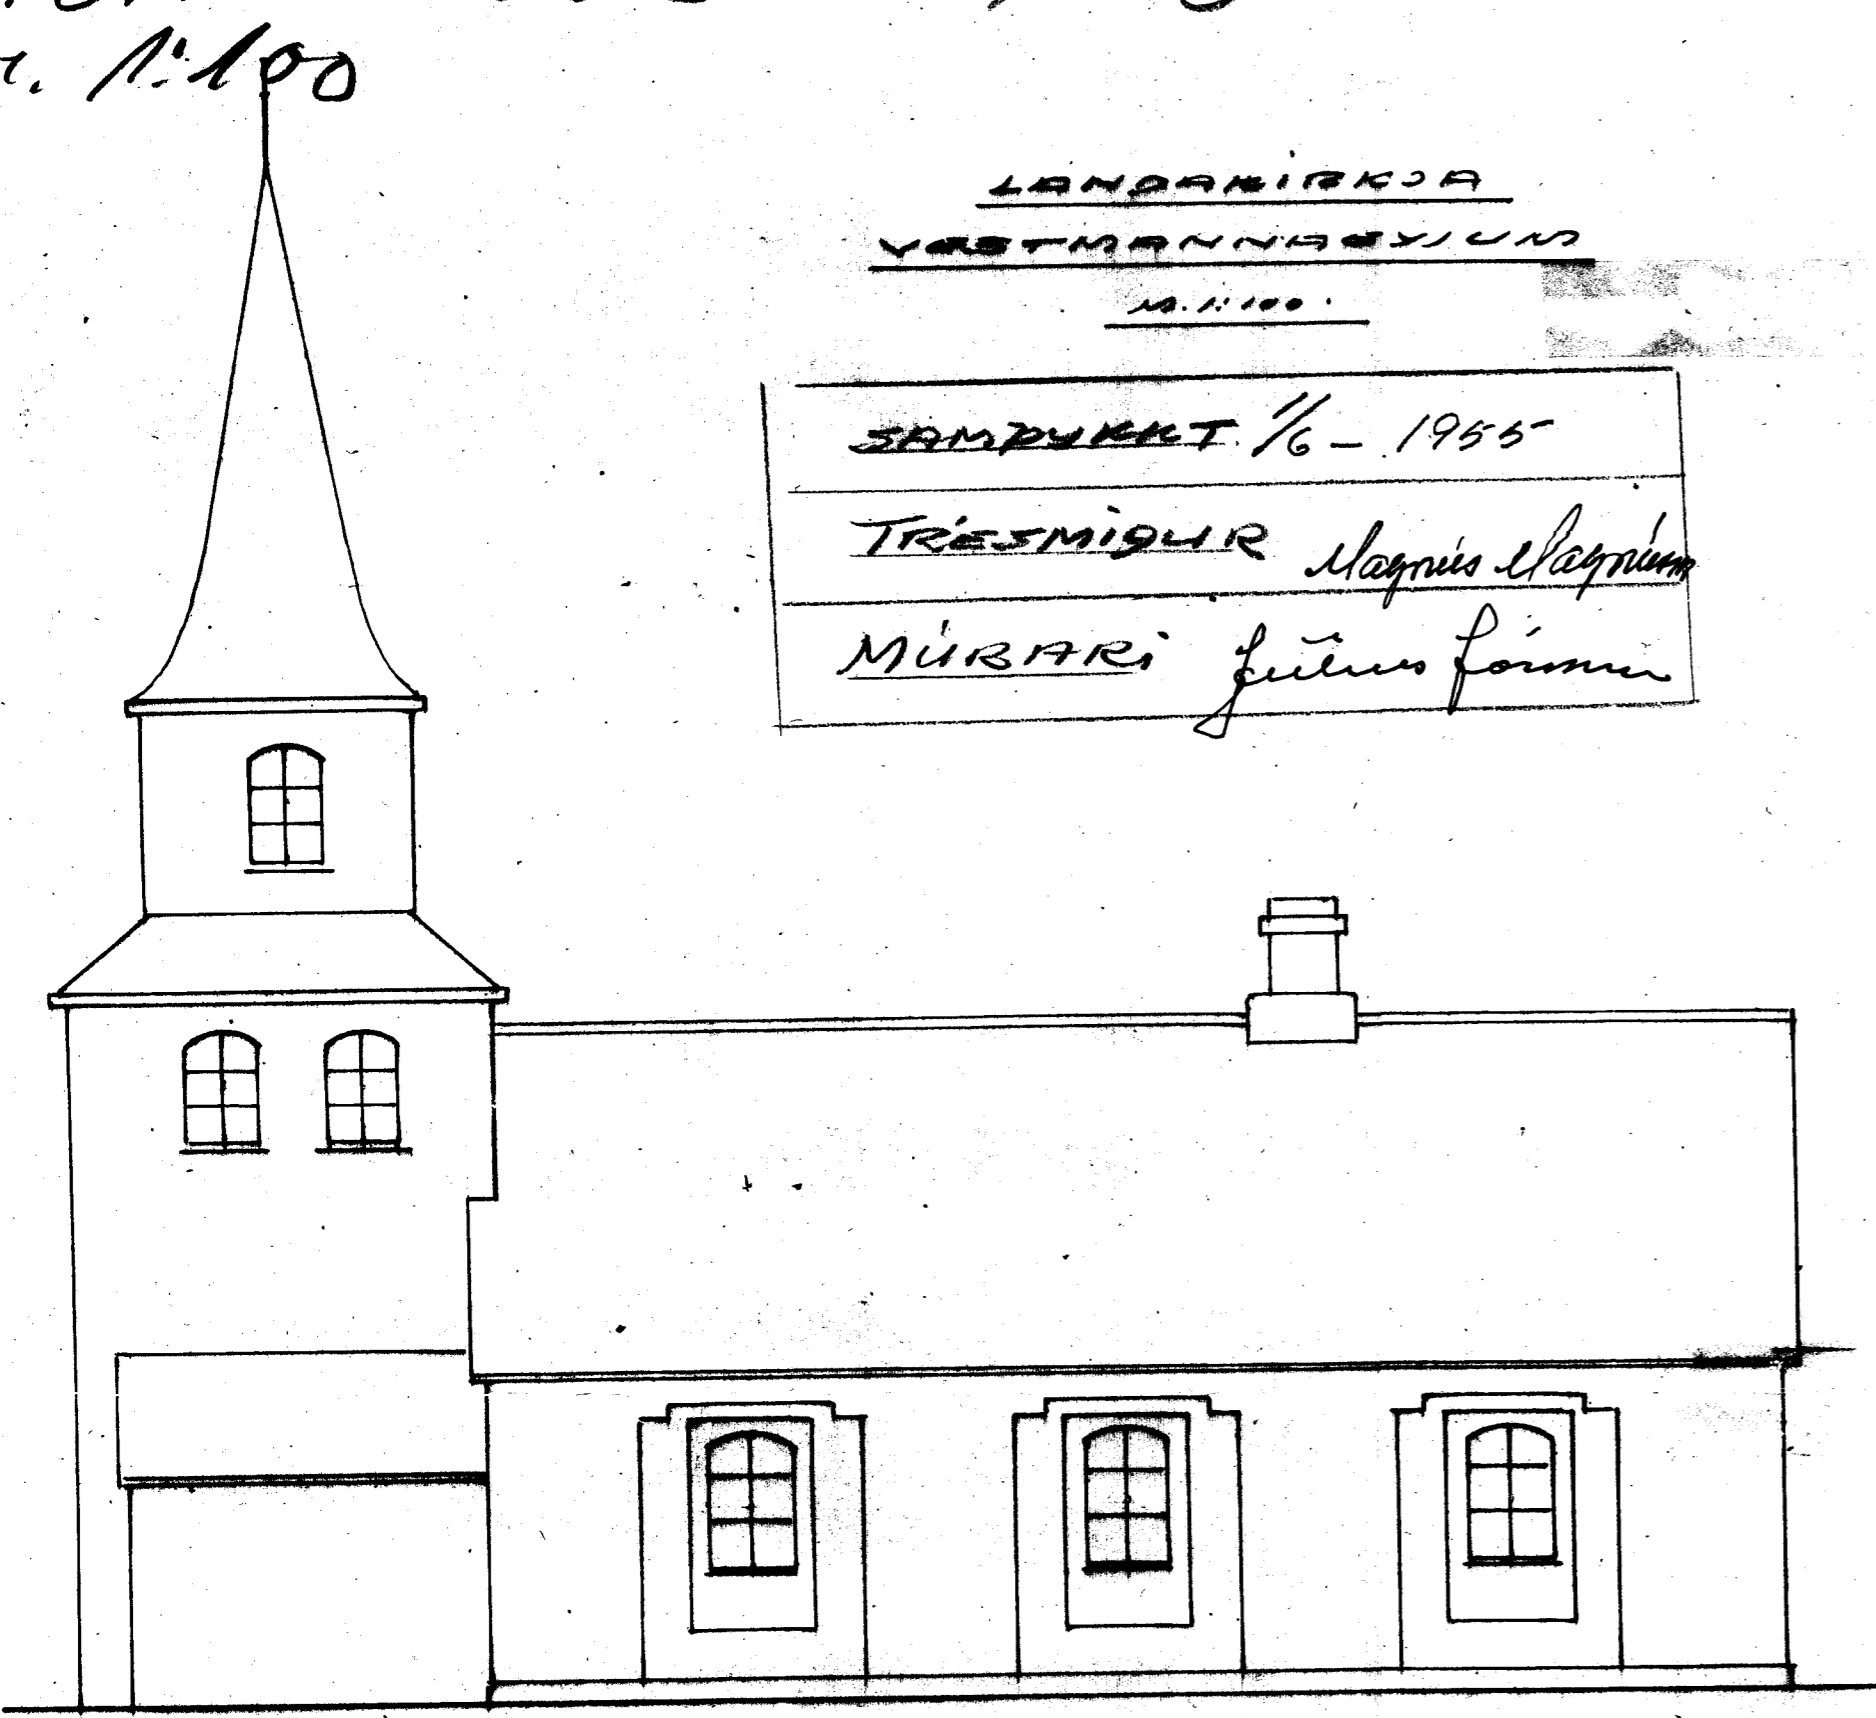 1:100
LANDAKIRKJA
VESTMANNAEYJUM
M. 1:100.
SAMÞYKKT 1/6 - 1955
TRÉSMIÐUR Magnús Magnússon
MÚRARI Júlíus Jónsson